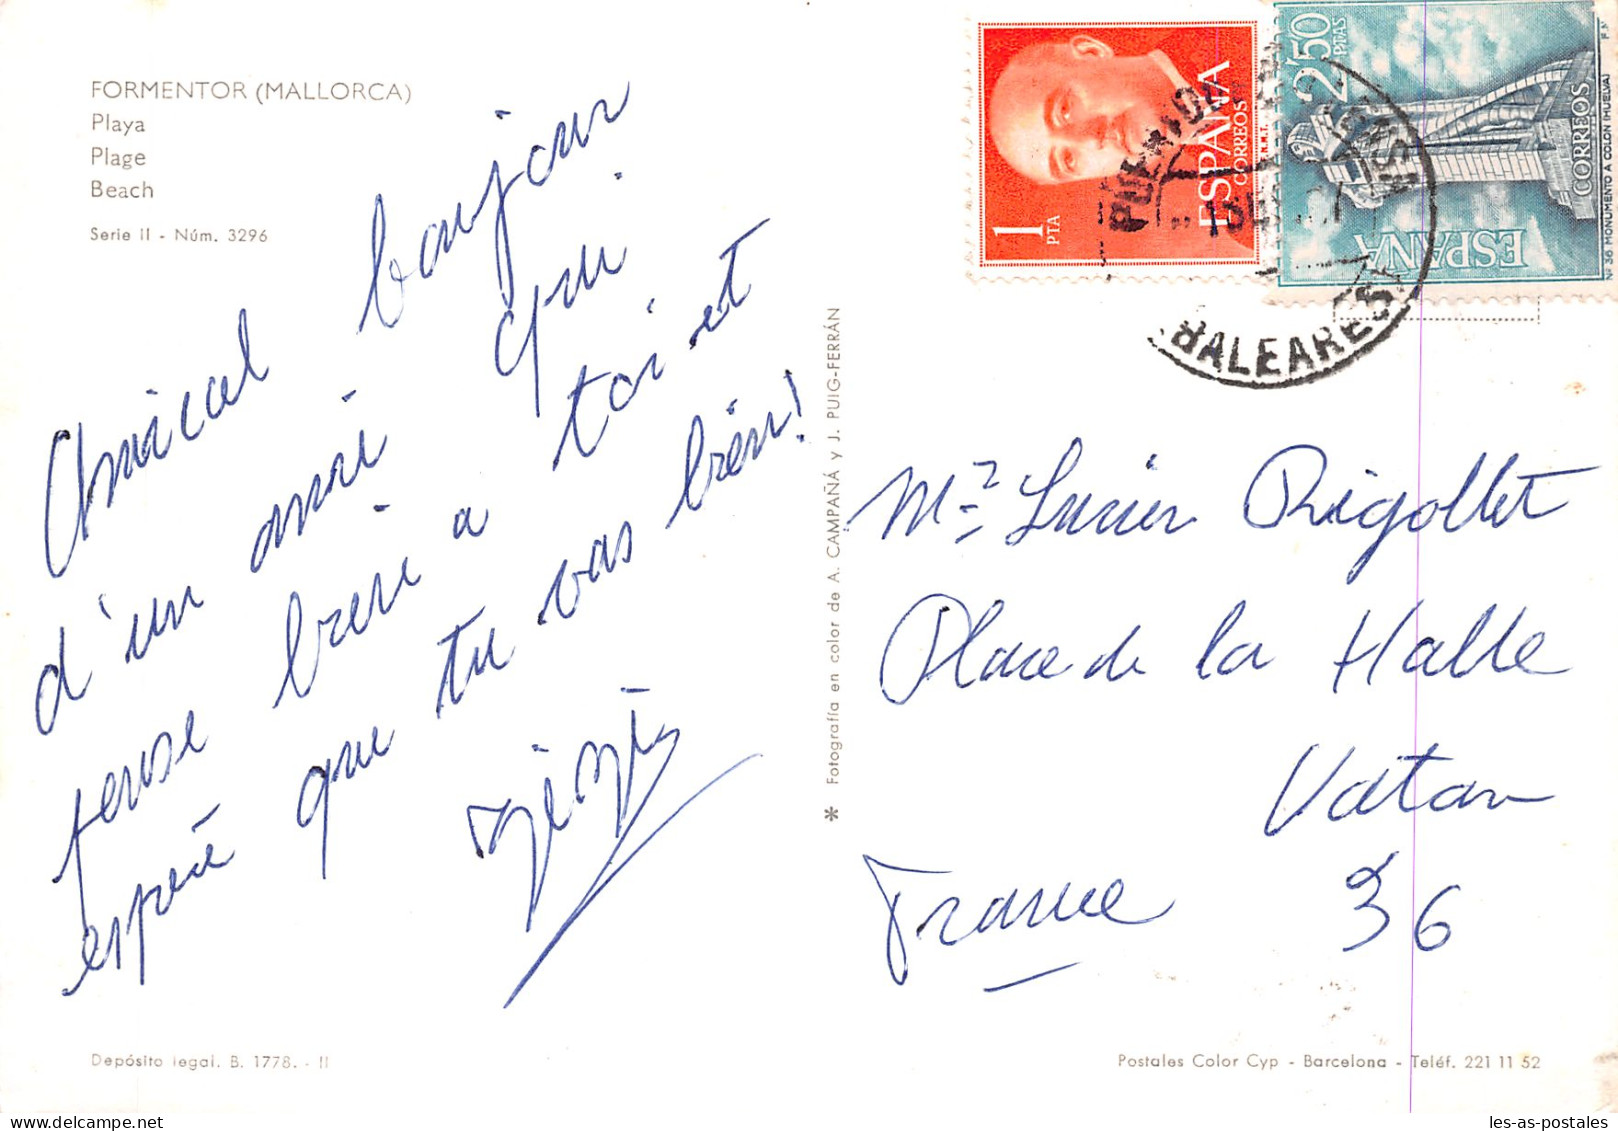 FORMENTOR (MALLORCA)
Playa
Plage
Beach
Serie II - Núm. 3296
Amical bonjour
d'un ami qui
pense bien a toi et
espère que tu vas bien!
Zizi
Depósito legal. B. 1778. - II
* Fotografía en color de A. CAMPAÑÁ y J. PUIG-FERRÁN
1 PTA
ESPAÑA
CORREOS
2'50 PTAS
CORREOS
ESPAÑA
Nº 36 MONUMENTO A COLON (HUELVA)
F.N.
BALEARES
Mr Lucien Rigollet
Place de la Halle
Vatan
France 36
Postales Color Cyp - Barcelona - Teléf. 221 11 52
les-as-postales